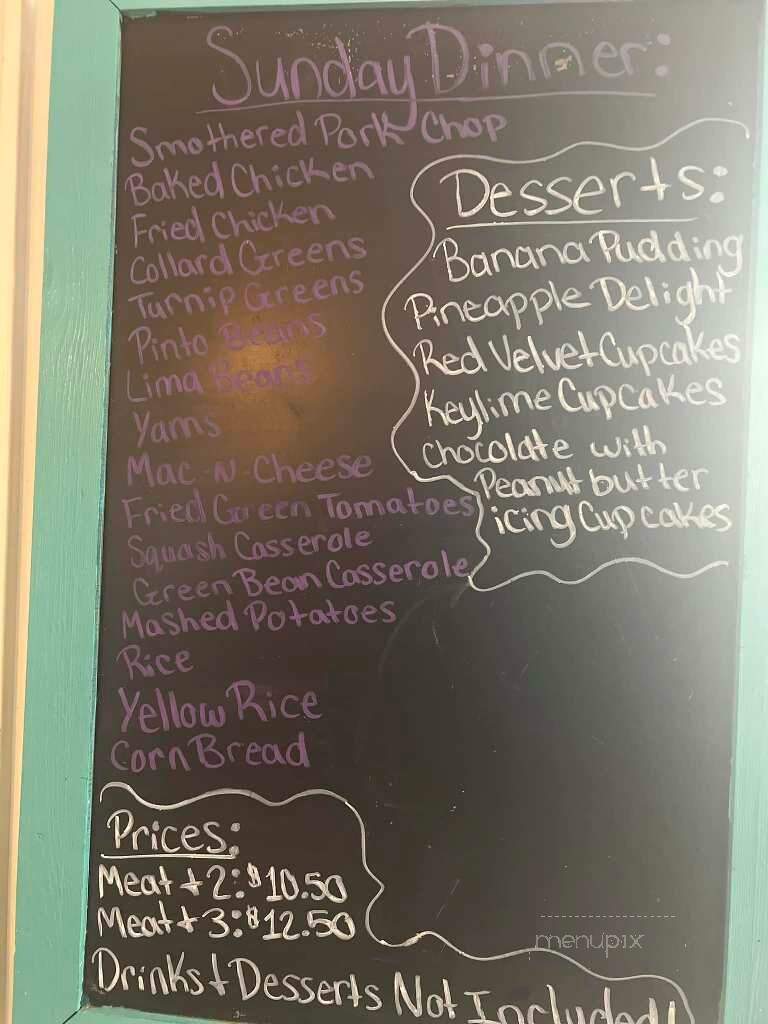 Sunday Dinner:
Smothered Pork Chop
Baked Chicken
Fried Chicken
Collard Greens
Turnip Greens
Pinto Beans
Lima Beans
Yams
Mac-N-Cheese
Fried Green Tomatoes
Squash Casserole
Green Bean Casserole
Mashed Potatoes
Rice
Yellow Rice
Corn Bread
Desserts:
Banana Pudding
Pineapple Delight
Red Velvet Cupcakes
Keylime Cupcakes
Chocolate with
Peanut butter
icing Cupcakes
Prices:
Meat + 2: $10.50
Meat + 3: $12.50
Drinks + Desserts Not Included!
menupix